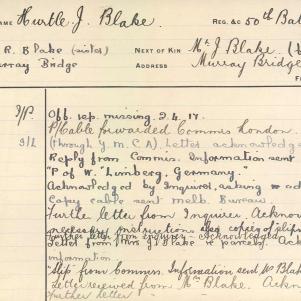 NAME Hurtle J. Blake. REG. &c 50th Bat
R. Blake (sister) NEXT OF KIN Mr J Blake.
Murray Bridge ADDRESS Murray Bridge
Off. rep. missing 2.4.17.
P/Cable forwarded Commis London.
(through Y.M.C.A) Letter acknowledged
Reply from Commis. Information sent
"P of W. "Limberg, Germany."
Acknowledged by Enquirer, asking
Copy cable sent Melb. Bureau
Further letter from Enquirer. Acknow
necessary instructions also copies of slips
further letter from enquirer - acknowledged
Letter from Mrs J Blake re parcels. Ack
information
Slip from commis. Information sent Mr Blake
Letter received from Mrs Blake. Ackn
further letter